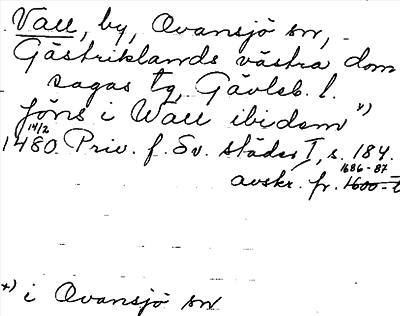 Vall, by, Ovansjö sn,
Gästriklands västra dom
sagas tg, Gävleb. l.
Jöns i Wall ibidem x)
14/2
1480 Priv. f. Sv. städer I, s. 184.
1686-87
avskr. fr. 1600-t
x) i Ovansjö sn